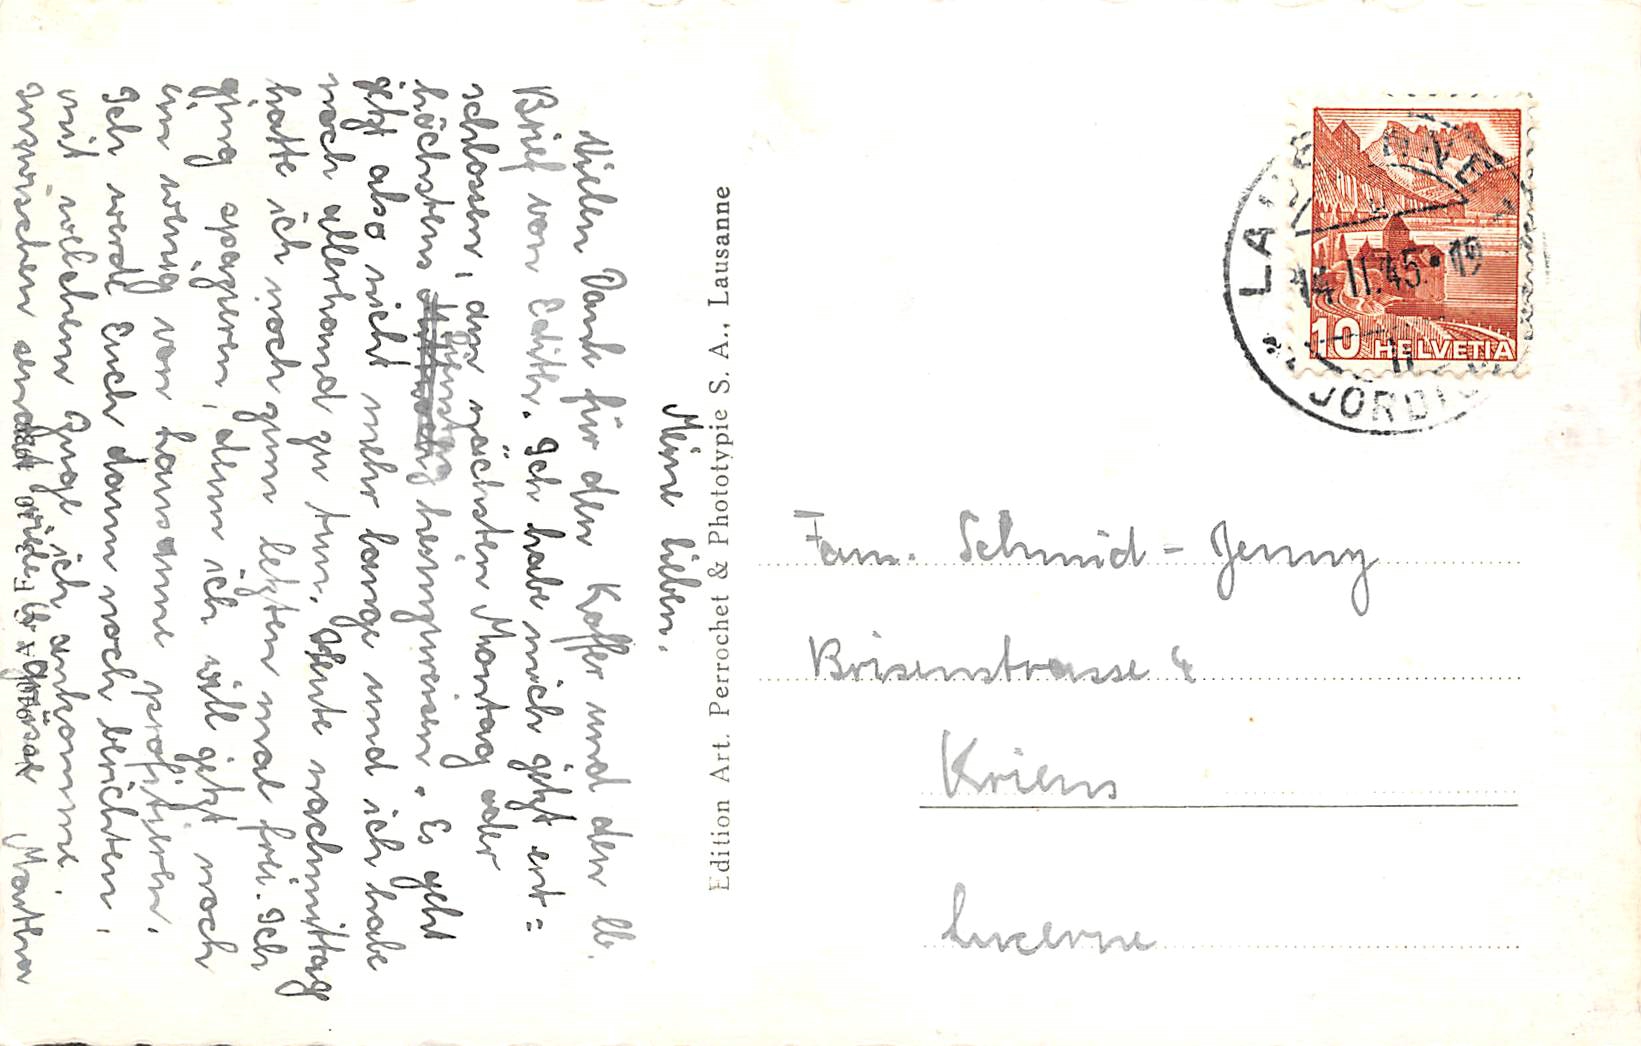 Meine lieben.
Vielen Dank für den Koffer und den lb.
Brief von Edith. Ich habe mich jetzt ent=
schlossen, am nächsten Montag oder
höchstens Dienstag heimzureisen. Es geht
jetzt also nicht mehr lange und ich habe
noch allerhand zu tun. Heute nachmittag
hatte ich noch zum letzten mal frei. Ich
ging spazieren, denn ich will jetzt noch
ein wenig von Lausanne profitieren.
Ich werde Euch dann noch berichten,
mit welchem Zuge ich ankomme.
Inzwischen sendet viele lb Grüsse Martha
Edition Art. Perrochet & Phototypie S. A., Lausanne
LAUSANNE
14.II.45.19
JORDI
10 HELVETIA
Fam. Schmid-Jenny
Brisenstrasse 4
Kriens
Lucerne